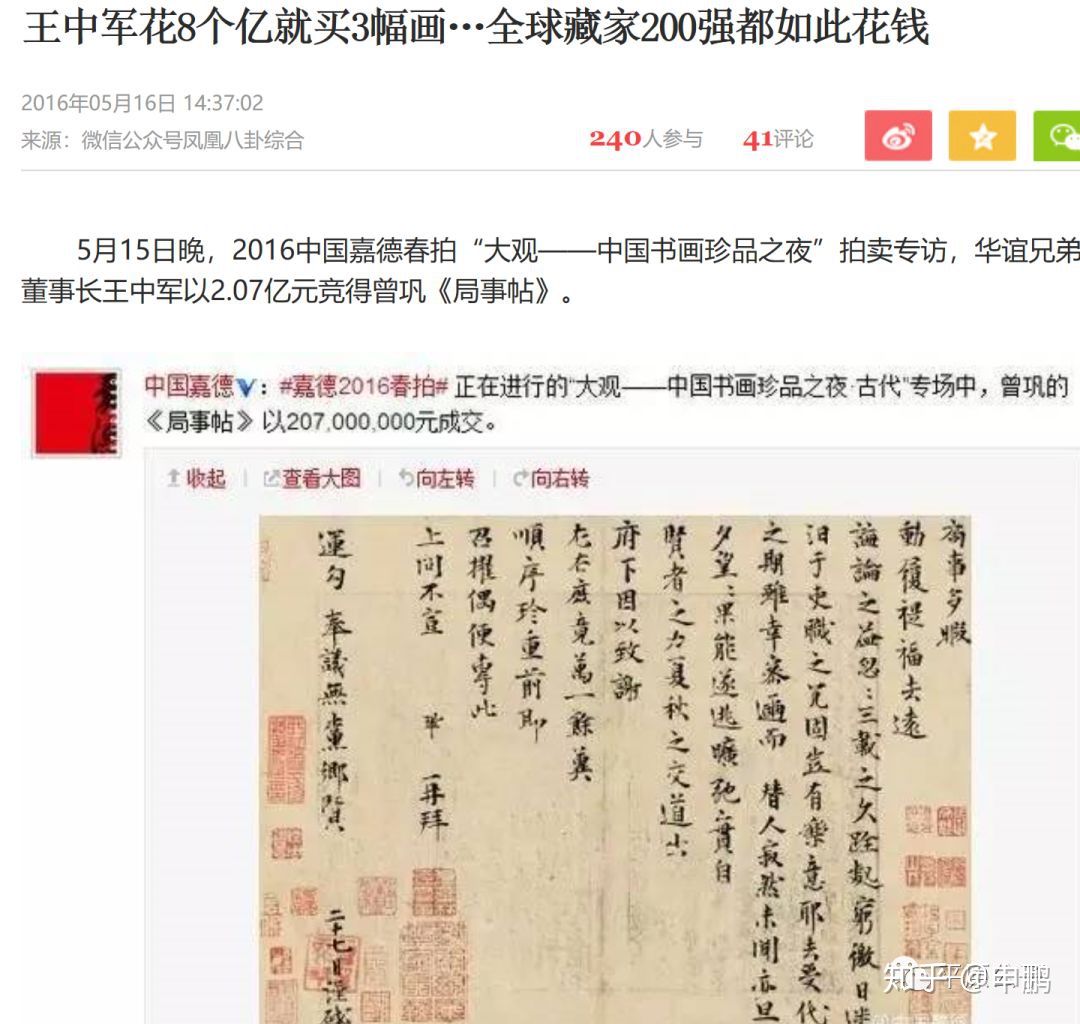 王中军花8个亿就买3幅画···全球藏家200强都如此花钱
2016年05月16日 14:37:02
来源：微信公众号凤凰八卦综合
240人参与 41评论
5月15日晚，2016中国嘉德春拍“大观——中国书画珍品之夜”拍卖专访，华谊兄弟
董事长王中军以2.07亿元竞得曾巩《局事帖》。
中国嘉德V：#嘉德2016春拍#正在进行的“大观——中国书画珍品之夜·古代”专场中，曾巩的
《局事帖》以207,000,000元成交。
收起 | 查看大图 | 向左转 | 向右转
局事多暇
動履禔福去遠
論之益忽：三載之久跧起窮徼日迷
汨于吏職之冗固豈有樂意耶去受代
之期雖幸密邇而 替人寂然未聞亦旦
夕望：果能遂逃曠弛實自
賢者之力夏秋之交道出
府下因以致謝
左右庶竟萬一餘冀
順序珍重前即
召擢偶便專此
上問不宣 鞏 再拜
運勾 奉議無黨鄉賢
二十七日謹
知乎 @申鹏